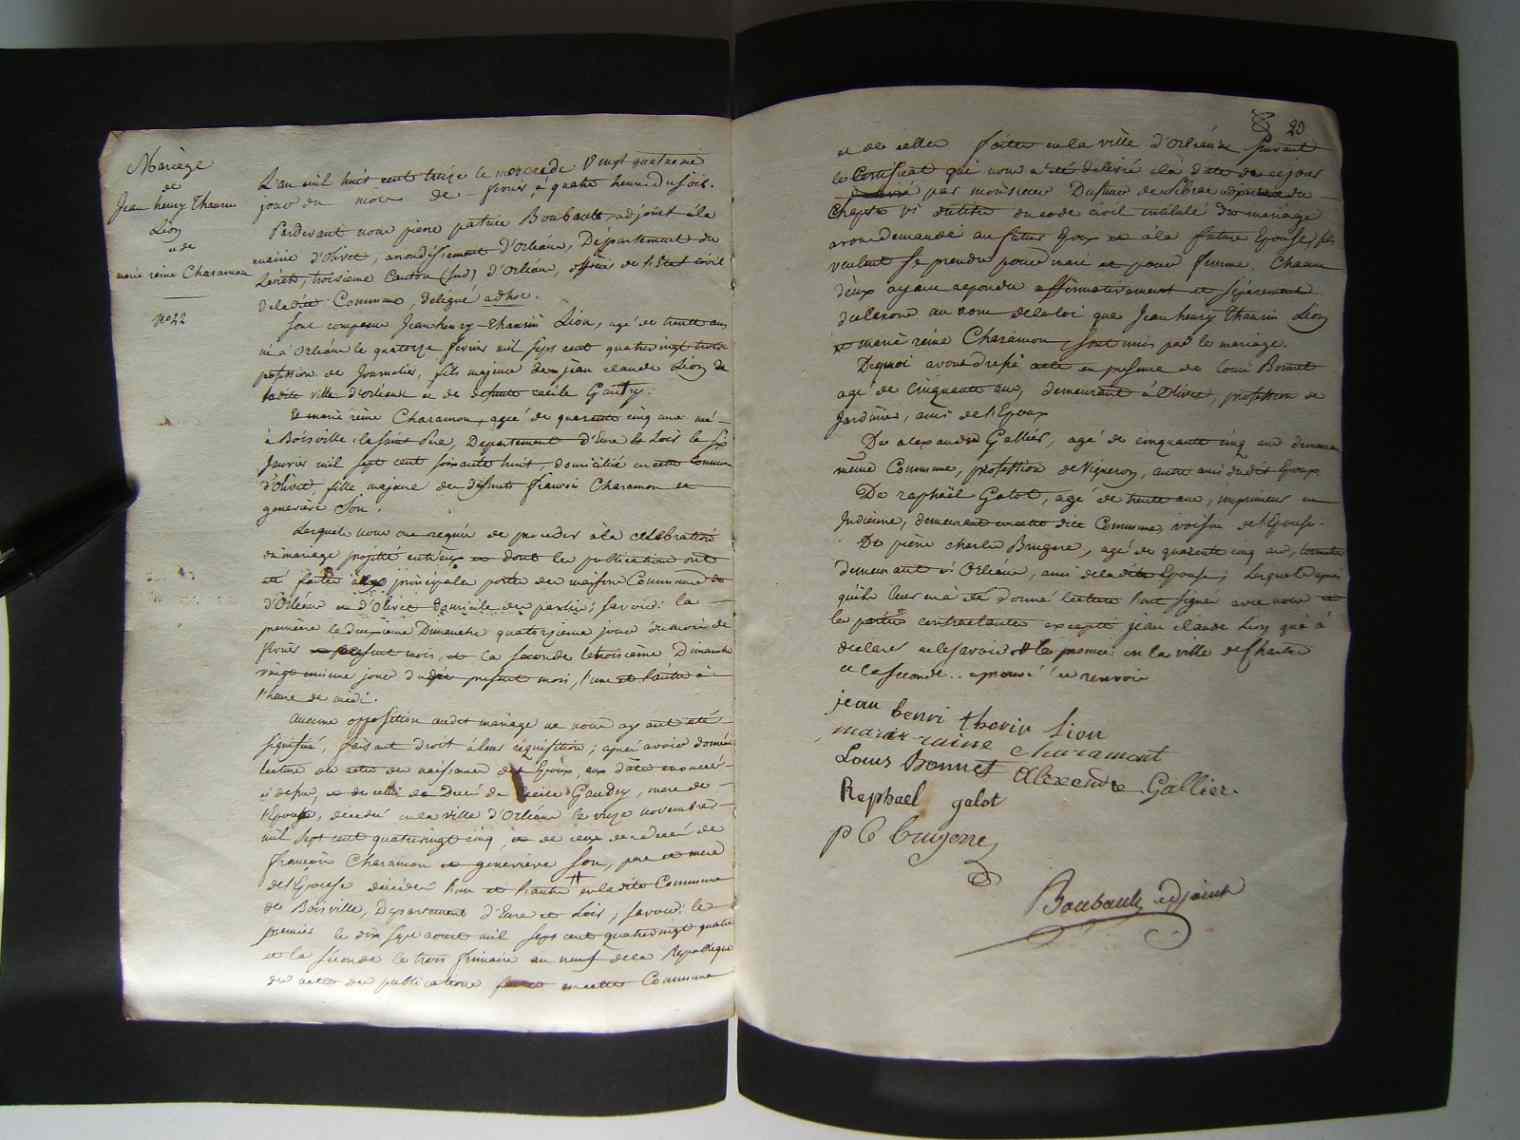 Mariage
de
Jean henry Thaurin
Lion
et de
marie reine Charamon
no 22
L'an mil huit cent treize le mercredy Vingt quatrieme
jour du mois de fevrier à quatre heures du soir.
Pardevant nous pierre patrice Boubault, adjoint à la
mairie d'olivet, arrondissement d'Orléans, Département du
Loiret, troisieme Canton (Sud) d'Orléans, officier de l'Etat civil
de ladite Commune, délégué adhoc.
Sont comparus Jean henry Thaurin Lion, agé de trente ans
né à Orléans le quatorze fevrier mil sept cent quatre vingt trois
profession de Journalier, fils majeur de jean claude Lion de
ladite ville d'orleans et de defunte cecile Gaudry.
Et marie reine Charamon, agée de quarente cinq ans née
à Boisville la saint Pere, Département d'Eure et Loir le six
Janvier mil sept cent soixante huit, domiciliée en cette Commune
d'Olivet, fille majeure de defunts françois Charamon et
genevieve Son.
Lesquels nous ont requis de proceder à la celebration
du mariage projetté entr'eux et dont les publications ont
été faites aux principales portes des maisons Communes
d'Orléans et d'Olivet domicile des parties; savoir: la
premiere le deuxieme Dimanche quatorzieme jour du mois de
fevrier present mois, et la seconde le troisieme Dimanche
vingt unieme jour du dit present mois, l'une et l'autre à
l'heure de midi.
Aucune opposition audit mariage ne nous ayant été
signifiée, faisant droit à leur réquisition; après avoir donné
lecture des actes de naissance des Epoux, aux dates enoncées
ci dessus, et de celui de Decès de Cecile Gaudry, mere de
l'Epoux, décédée en la ville d'Orléans le onze novembre
mil sept cent quatrevingt cinq, et de ceux de decès de
françois Charamon et genevieve Son, pere et mere
de l'Epouse décédés l'un et l'autre # en ladite Commune
de Boisville, Département d'Eure et Loir, savoir: le
premier le dix sept aout mil sept cent quatrevingt quatre
et la seconde le trois frimaire an neuf de la République
des actes de publications faites en cette Commune
20
et de celles faites en la ville d'Orléans suivant
le Certificat qui nous a été délivré à la date de ce jour
par monsieur adjoint du
Chapitre vi du titre du code civil intitulé du mariage
avons demandé au futur Epoux et à la future Epouse s'ils
veulent se prendre pour mari et pour femme. Chacun
d'eux ayant repondu affirmativement et séparément
déclarons au nom de la loi que Jean henry Thaurin Lion
et marie reine Charamon, sont unis par le mariage.
De quoi avons dressé acte en présence de Louis Bonnet
agé de cinquante ans, demeurant à Olivet, profession de
Jardinier, ami de l'Epoux
De alexandre Gallier, agé de cinquante cinq ans demeurant
même Commune, profession de Vigneron, autre ami dudit Epoux
De raphaël Galot, agé de trente ans, imprimeur en
Indienne, demeurant en cette dite Commune, voisin de l'Epouse.
De pierre charles Brugere, agé de quarente cinq ans,
demeurant à Orléans, ami de ladite Epouse; Lesquels après
qu'il leur en a été donné lecture l'ont signé avec nous et
les parties contractantes excepté jean claude Lion qui à
déclaré ne le savoir # le premier en la ville de Chartres
et la seconde.. approuvé ce renvoi
jean henri thorin lion
marie raine charamont
Louis Bonnet Alexendre Gallier.
Raphael galot
p C brugerre
Boubault adjoint